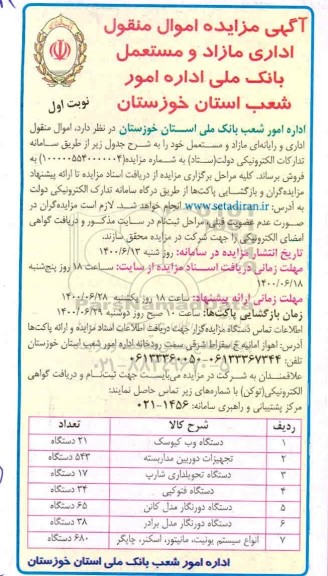 آگهی مزایده اموال منقول
اداری مازاد و مستعمل
بانک ملی اداره امور
شعب استان خوزستان
نوبت اول
اداره امور شعب بانک ملی استان خوزستان در نظر دارد، اموال منقول
اداری و رایانه‌ای مازاد و مستعمل خود را به شرح جدول زیر از طریق سامانه
تدارکات الکترونیکی دولت(ستاد) به شماره مزایده(۱۰۰۰۰۰۵۵۴۰۰۰۰۰۴) به
فروش برساند. کلیه مراحل برگزاری مزایده از دریافت اسناد مزایده تا ارائه پیشنهاد
مزایده‌گران و بازگشایی پاکت‌ها از طریق درگاه سامانه تدارک الکترونیکی دولت
به آدرس: www.setadiran.ir انجام خواهد شد. لازم است مزایده‌گران در
صورت عدم عضویت قبلی، مراحل ثبت‌نام در سایت مذکور و دریافت گواهی
امضای الکترونیکی را جهت شرکت در مزایده محقق سازند.
تاریخ انتشار مزایده در سامانه: روز شنبه ۱۴۰۰/۶/۱۳
مهلت زمانی دریافت اسناد مزایده از سایت: ساعت ۱۸ روز پنج‌شنبه
۱۴۰۰/۶/۱۸
مهلت زمانی ارائه پیشنهاد: ساعت ۱۸ روز یکشنبه ۱۴۰۰/۰۶/۲۸
زمان بازگشایی پاکت‌ها: ساعت ۱۰ صبح روز دوشنبه ۱۴۰۰/۰۶/۲۹
اطلاعات تماس دستگاه مزایده‌گزار جهت دریافت اطلاعات اسناد مزایده و ارائه پاکت‌ها
آدرس: اهواز امانیه خ سقراط شرقی سمت رودخانه اداره امور شعب استان خوزستان
تلفن: ۰۶۱۳۳۳۶۷۳۴۴-۰۶۱۳۳۳۶۰۰۵۰
علاقمندان به شرکت در مزایده می‌بایست جهت ثبت‌نام و دریافت گواهی
الکترونیکی(توکن) با شماره‌های زیر تماس حاصل نمایند:
مرکز پشتیبانی و راهبری سامانه: ۱۴۵۶-۰۲۱
ردیف شرح کالا تعداد
۱ دستگاه وب کیوسک ۲۱ دستگاه
۲ تجهیزات دوربین مداربسته ۵۴۳ دستگاه
۳ دستگاه تحویلداری شارپ ۱۷ دستگاه
۴ دستگاه فتوکپی ۳۴ دستگاه
۵ دستگاه دورنگار مدل کانن ۶۵ دستگاه
۶ دستگاه دورنگار مدل برادر ۳۸ دستگاه
۷ انواع سیستم یونیت، مانیتور، اسکنر، چاپگر ۶۸۰ دستگاه
اداره امور شعب بانک ملی استان خوزستان